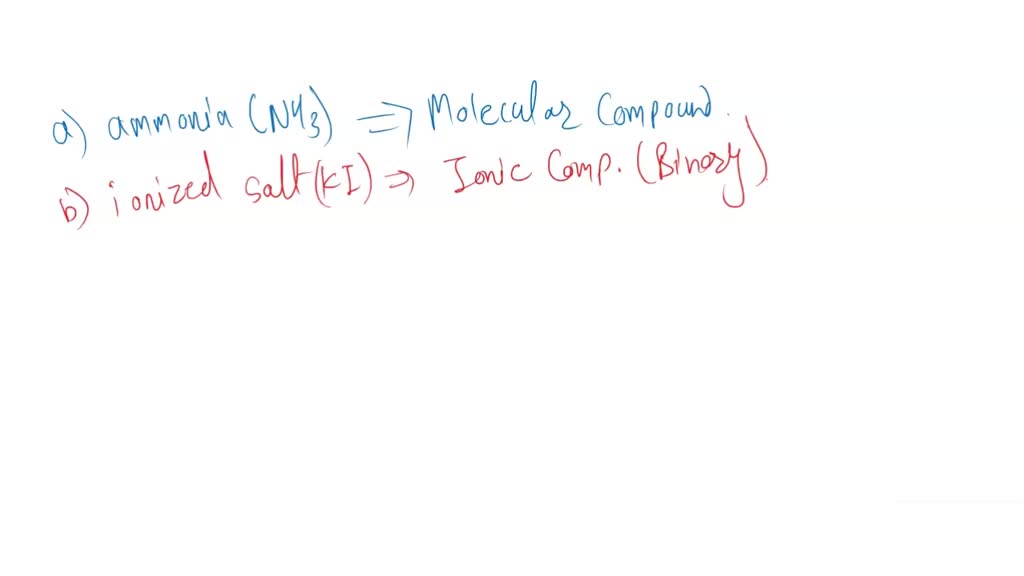 a) ammonia (NH3) ⇒ Molecular Compound.
b) ionized salt (KI) → Ionic Comp. (Binary)